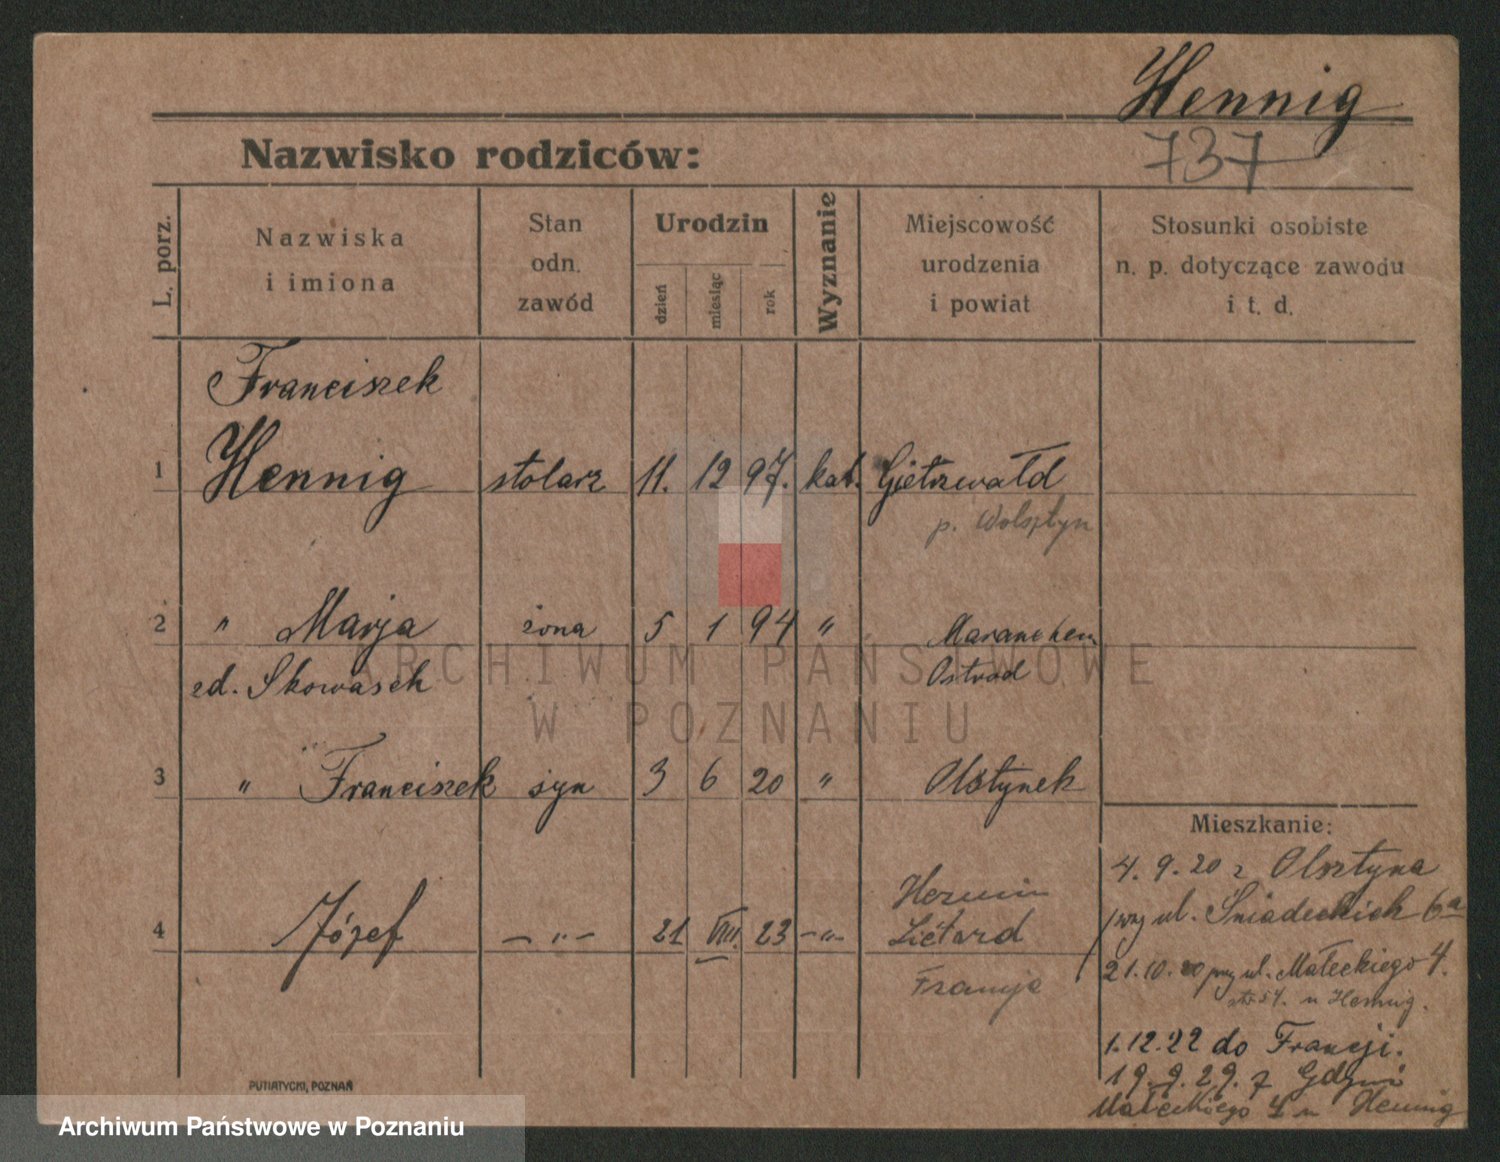 Hennig
737
Nazwisko rodziców:
L. porz.
Nazwiska
i imiona
Stan
odn.
zawód
Urodzin
dzień
miesiąc
rok
Wyznanie
Miejscowość
urodzenia
i powiat
Stosunki osobiste
n. p. dotyczące zawodu
i t. d.
Franciszek
1 Hennig stolarz 11. 12 97. kat. Gietrzwałd
p. Wolsztyn
2 " Marja żona 5 1 94 "
zd. Skowasch Ostród
3 " Franciszek syn 3 6 20 " Olsztynek
Mieszkanie:
4. 9. 20 z Olsztyna
przy ul. Śniadeckich 6a
4 Józef — " — 21 VIII. 23 — " — Liétard
21. 10. 20 przy ul. Małeckiego 4.
Francja
u Hennig.
1. 12. 22 do Francji.
19. 9. 29. z Gdyni
Małeckiego 4 u Hennig
PUTIATYCKI, POZNAŃ
ARCHIWUM PAŃSTWOWE
W POZNANIU
Archiwum Państwowe w Poznaniu